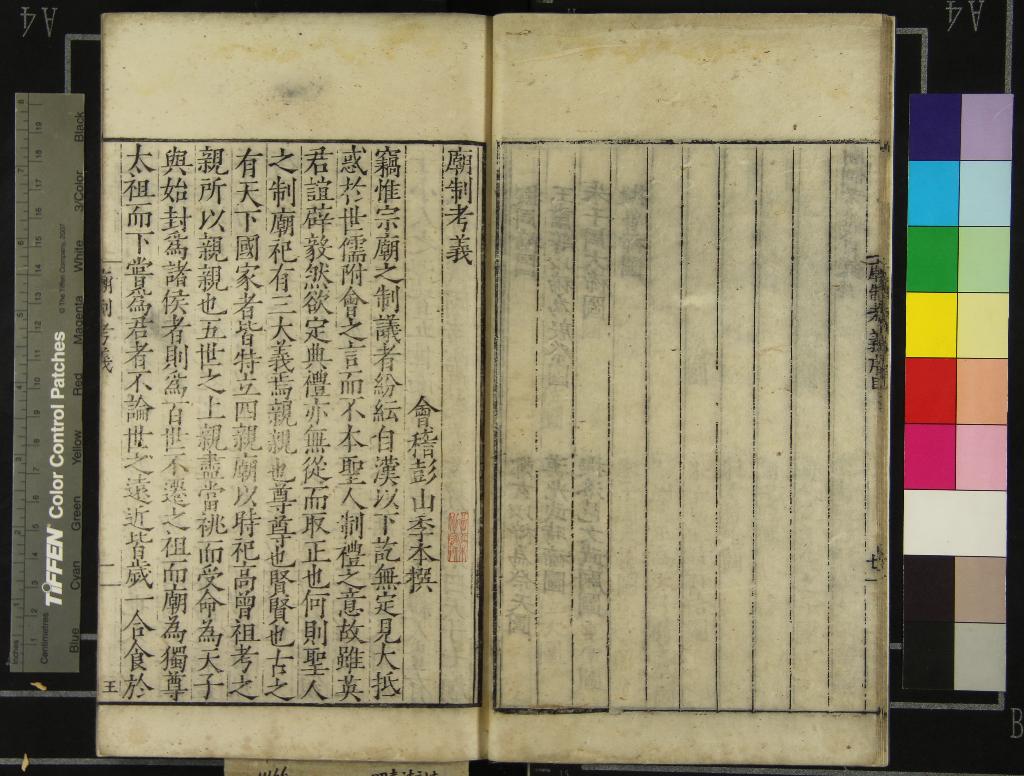 廟制考義
會稽彭山季本撰
竊惟宗廟之制議者紛紜自漢以下訖無定見大抵
惑於世儒附會之言而不本聖人制禮之意故雖英
君誼辟毅然欲定典禮亦無從而取正也何則聖人
之制廟祀有三大義焉親親也尊尊也賢賢也古之
有天下國家者皆特立四親廟以時祀高曾祖考之
親所以親親也五世之上親盡當祧而受命為天子
與始封爲諸侯者則爲百世不遷之祖而廟為獨尊
太祖而下嘗為君者不論世之遠近皆歲一合食於
廟制考義
一
王
廟制考義
TIFFEN Color Control Patches
© The Tiffen Company, 2007
Inches
Centimetres
Blue
Cyan
Green
Yellow
Red
Magenta
White
3/Color
Black
A4
A4
B